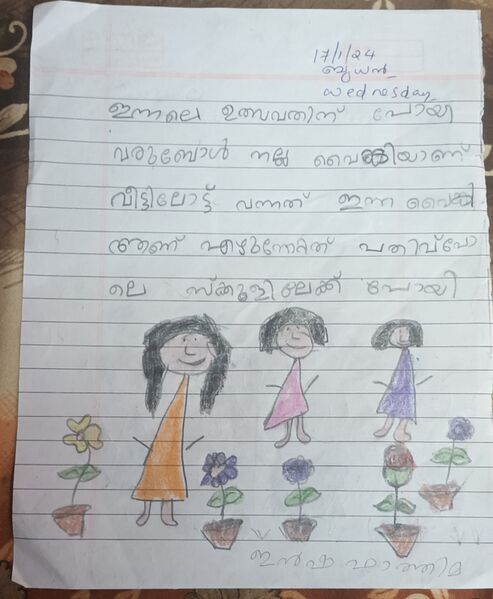 17/1/24
ബുധൻ
wednesday
ഇന്നലെ ഉത്സവതിന് പോയി
വരുബോൾ നല്ല വൈകിയാണ്
വീട്ടിലോട്ട് വന്നത് ഇന്ന വൈകി
ആണ് എഴുന്നേറ്റത് പതിവ്പോ
ലെ സ്ക്കൂളിലേക്ക് പോയി
ഇൻഷ ഫാത്തിമ